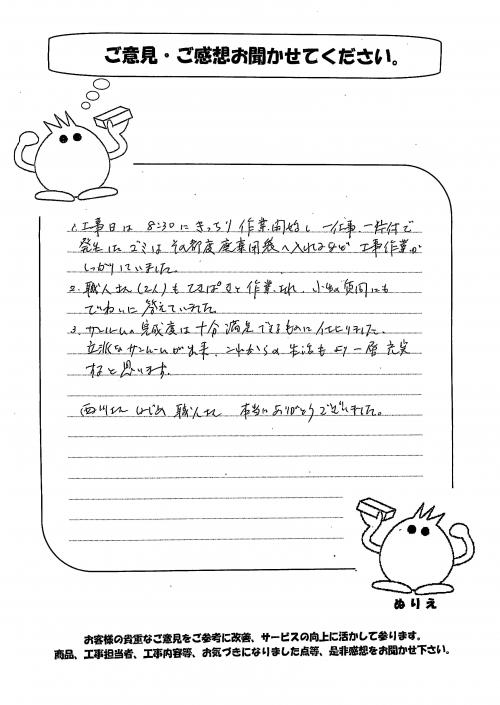 ご意見・ご感想お聞かせてください。
1. 工事日は 8:30にきっちり作業開始し 一仕事、一片付で
発生した ゴミは その都度 廃棄用袋へ入れるなど 工事作業が
しっかりしていました。
2. 職人さん(2人)も てきぱきと作業され、小生の質問にも
ていねいに 答えていました。
3. サンルームの完成度は 十分 満足できるものに 仕上りました。
立派なサンルームが出来、これからの 生活も より一層 充実
すると思います。
西川さん はじめ 職人さん 本当に ありがとうございました。
ぬりえ
お客様の貴重なご意見をご参考に改善、サービスの向上に活かして参ります。
商品、工事担当者、工事内容等、お気づきになりました点等、是非感想をお聞かせ下さい。